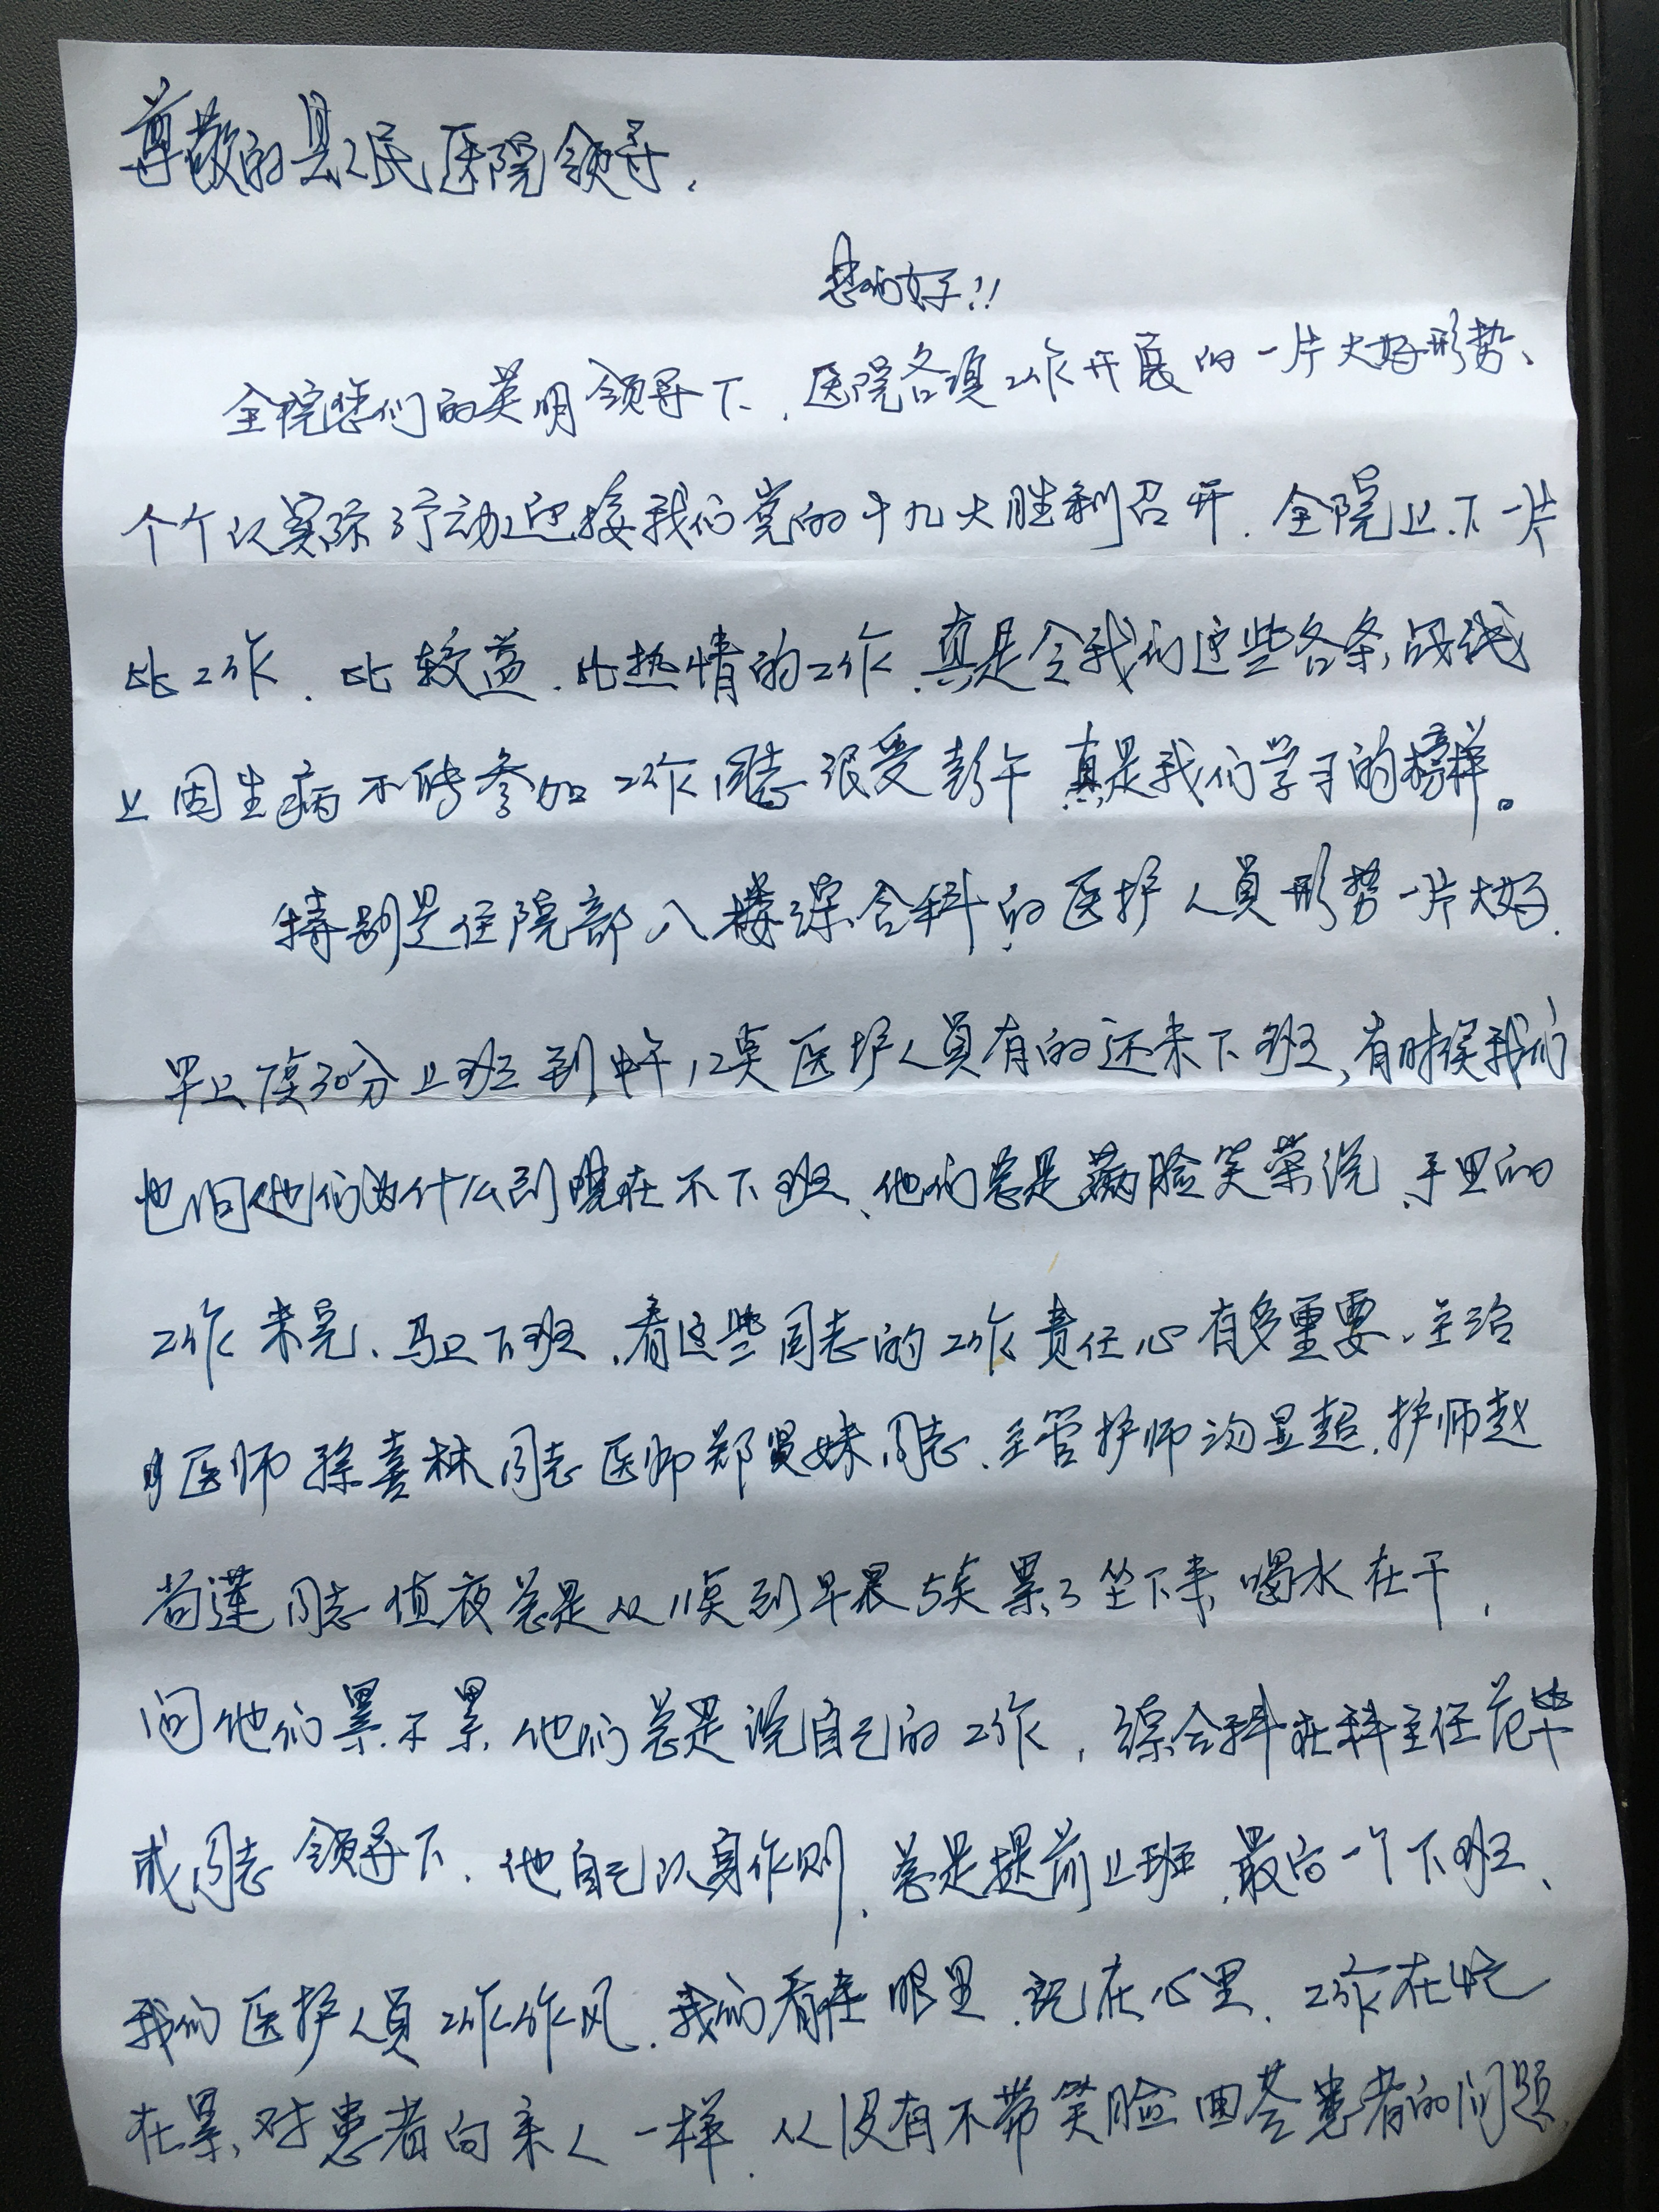 尊敬的县人民医院领导.
您们好!!
全院您们的英明领导下.医院各项工作开展的一片大好形势、
个个以实际行动迎接我们党的十九大胜利召开.全院上下一片
比工作.比较益.比热情的工作.真是令我们这些各条战线
上因生病不能参加工作同志很受 真是我们学习的榜样。
特别是住院部八楼综合科的医护人员形势一片大好.
早上 30分上班到中午12点医护人员有的还未下班,有时候我们
也问他们为什么到现在不下班、他们总是满脸笑荣说、手里的
工作未完、马上下班.看这些同志的工作责任心有多重要.主治
医师孙喜林同志医师郑贤妹同志.主管护师 显超.护师赵
莲同志值夜总是从11点到早晨5点累了坐下来喝水在干,
问他们累不累.他们总是说自己的工作,综合科在科主任范
成同志领导下.他自己以身作则.总是提前上班.最后一个下班、
我们医护人员工作作风.我们看在眼里.记在心里.工作在忙
在累、对患者向亲人一样.从没有不带笑脸回答患者的问题.